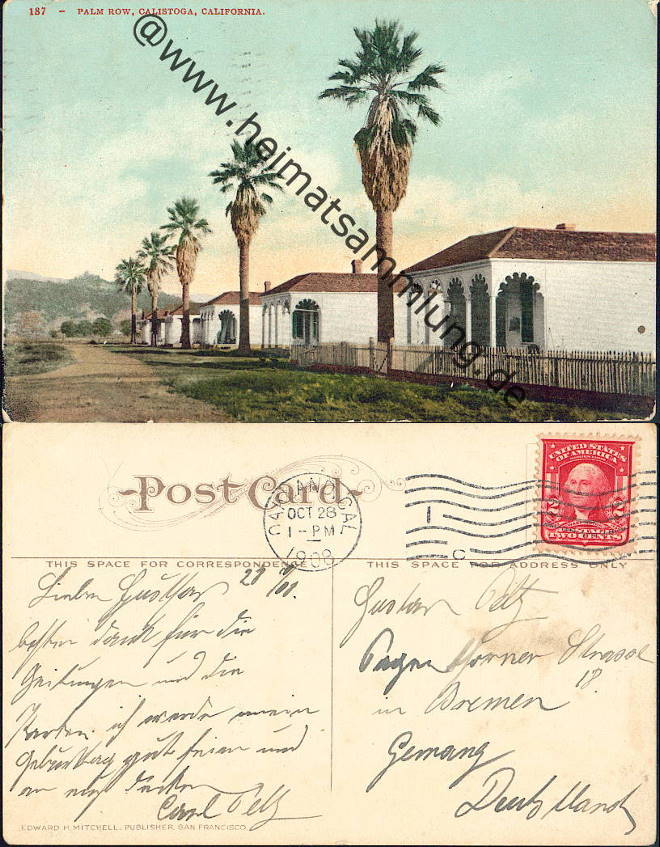 187 - PALM ROW, CALISTOGA, CALIFORNIA.
@www.heimatsammlung.de
Post Card
HAVANA CAL
OCT 28
1-PM
1908
UNITED STATES
OF AMERICA
2 2
POSTAGE
TWO CENTS
1
C
THIS SPACE FOR CORRESPONDENCE
THIS SPACE FOR ADDRESS ONLY
Lieber Gustav 28
besten Dank für die
Zeitungen und die
Karten ich werde meinen
Geburtstag gut feiern und
an euch denken
Carl Peltz
Gustav Peltz
Strasse
18
in Bremen
Germany
Deutschland
EDWARD H. MITCHELL, PUBLISHER, SAN FRANCISCO